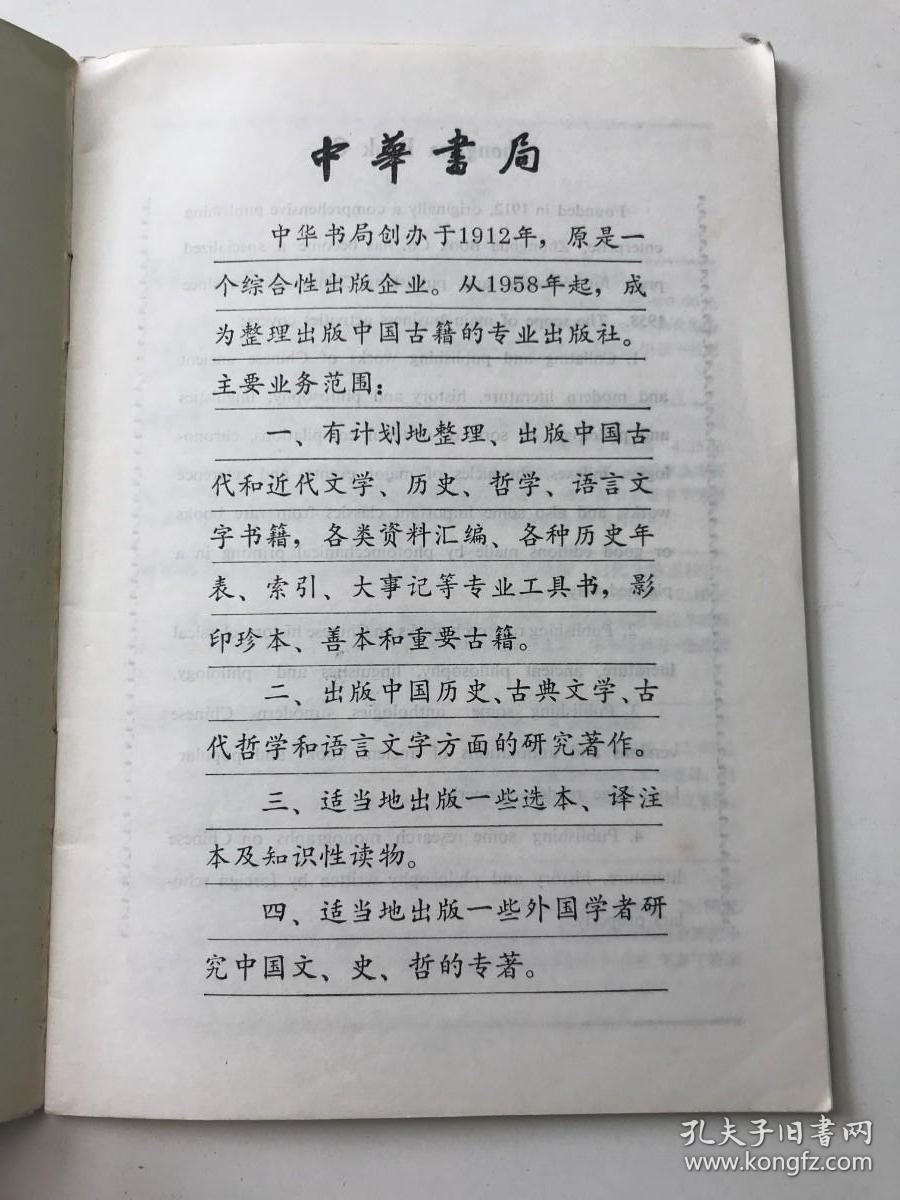 中華書局
中华书局创办于1912年，原是一
个综合性出版企业。从1958年起，成
为整理出版中国古籍的专业出版社。
主要业务范围：
一、有计划地整理、出版中国古
代和近代文学、历史、哲学、语言文
字书籍，各类资料汇编、各种历史年
表、索引、大事记等专业工具书，影
印珍本、善本和重要古籍。
二、出版中国历史、古典文学、古
代哲学和语言文字方面的研究著作。
三、适当地出版一些选本、译注
本及知识性读物。
四、适当地出版一些外国学者研
究中国文、史、哲的专著。
孔夫子旧书网
www.kongfz.com